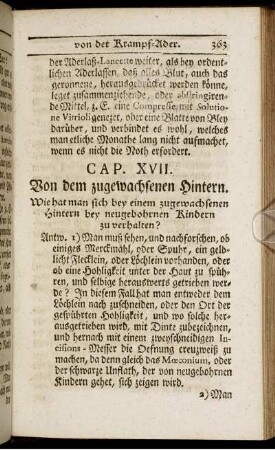 von der Krampf-Ader. 363
der Aderlaß-Lancette weiter, als bey ordent-
lichen Aderlassen, daß alles Blut, auch das
geronnene, herausgedrücket werden könne,
leget zusammenziehende, oder abstringiren-
de Mittel, z. E. eine Compresse, mit Solutio-
ne Vitrioli genezet, oder eine Blatte von Bley
darüber, und verbindet es wohl, welches
man etliche Monathe lang nicht aufmachet,
wenn es nicht die Noth erfordert.
CAP. XVII.
Von dem zugewachsenen Hintern.
Wie hat man sich bey einem zugewachsenen
Hintern bey neugebohrnen Kindern
zu verhalten?
Antw. 1) Man muß sehen, und nachforschen, ob
einiges Merckmahl, oder Spuhr, ein geld-
licht Flecklein, oder Löchlein vorhanden, oder
ob eine Hohligkeit unter der Haut zu spüh-
ren, und selbige herauswerts getrieben wer-
de? In diesem Fall hat man entweder dem
Löchlein nach zuschneiden, oder den Ort der
gespührten Hohligkeit, und wo solche her-
ausgetrieben wird, mit Dinte zubezeichnen,
und hernach mit einem zweyschneidigen In-
cisions-Messer die Oefnung creuzweiß zu
machen, da denn gleich das Mœconium, oder
der schwarze Unflath, der von neugebohrnen
Kindern gehet, sich zeigen wird.
2) Man